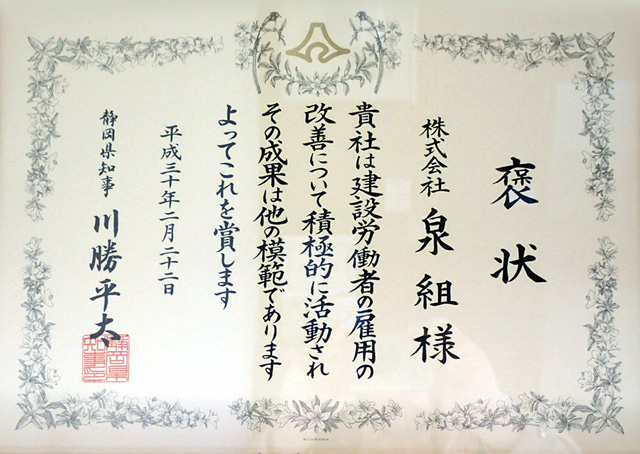 褒状
株式会社 泉組様
貴社は建設労働者の雇用の
改善について積極的に活動され
その成果は他の模範であります
よってこれを賞します
平成三十年二月二十二日
静岡県知事 川勝平太